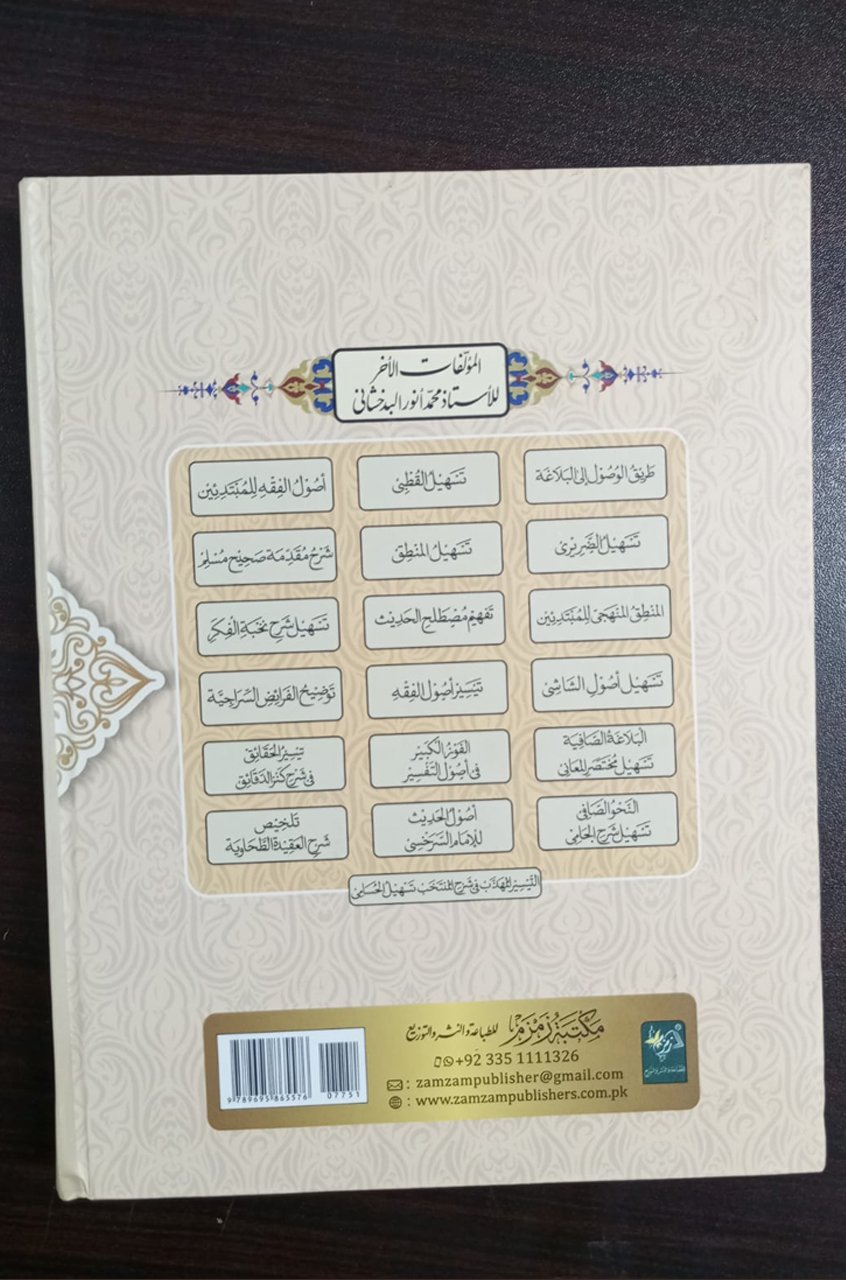 المؤلّفات الأخر
للأستاذ محمّد أنور البدخشاني
طَرِيقُ الوُصُوْل إلى البَلَاغَة
تَسَهِيْلُ القُطْبِيْ
أصُوْلُ الفِقْهِ لِلمُبْتَدِئِيْن
تَسَهِيْلُ الضَّرِيْرِيْ
تَسَهِيْلُ المَنْطِق
شَرْحُ مُقَدِّمَة صَحِيْح مُسْلِمْ
المَنْطِقُ المَنْهَجِيْ لِلمُبْتَدِئِيْن
تَفهِيْم مُصْطَلحِ الحَدِيْث
تَسَهِيْل شَرْحِ نُخْبَةِ الفِكَرِ
تَسَهِيْل أصُوْلِ الشَاشِيْ
تَيْسِيْر أصُوْلِ الفِقْهِ
تَوْضِيْحُ الفَرَائِضِ السِّرَاجِيَّة
البَلَاغَةُ الصَّافِيَة
تَسَهِيْل مُخْتَصَرِ المَعَانِيْ
الفَوْزُ الكَبِيْر
فِيْ أصُوْلِ التَّفْسِيْر
تيْسِيْرُ الحَقَائِق
فِيْ شَرْحِ كَنْزِ الدَقَائِق
النَّحْوُ الصَّافِيْ
تَسَهِيْل شَرْحِ الجَامِيْ
أصُوْلُ الحَدِيْث
لِلإمَامِ السَّرَخْسِيْ
تَلخِيْص
شَرْحِ العَقِيْدَة الطَّحَاوِيَة
التَّيْسِيْرُ المُهَذَّبْ فِيْ شَرْحِ المُنْتَخَبْ تَسْهِيْلُ الحُسَامِيْ
مَكْتَبَة زَمْزَم للطباعة والنشر والتوزيع
+92 335 1111326
: zamzampublisher@gmail.com
: www.zamzampublishers.com.pk
9 789695 865576
07751